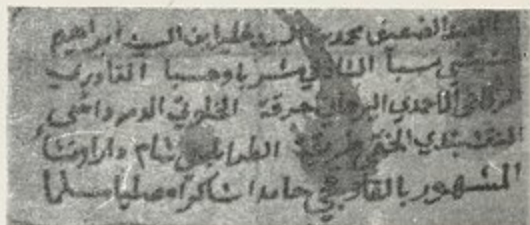 العبد الضعيف محمد بن السيد خليل ابن السيد ابراهيم
نسبا الشاذلي مشربا ومحبا القادري
الاحمدي البرهاني خرقة الخلوتي الدمرداشي
النقشبندي طريقة الطرابلسي شام دارا ومنشا
المشهور بالقاوقجي حامدا شاكرا ومصليا مسلما